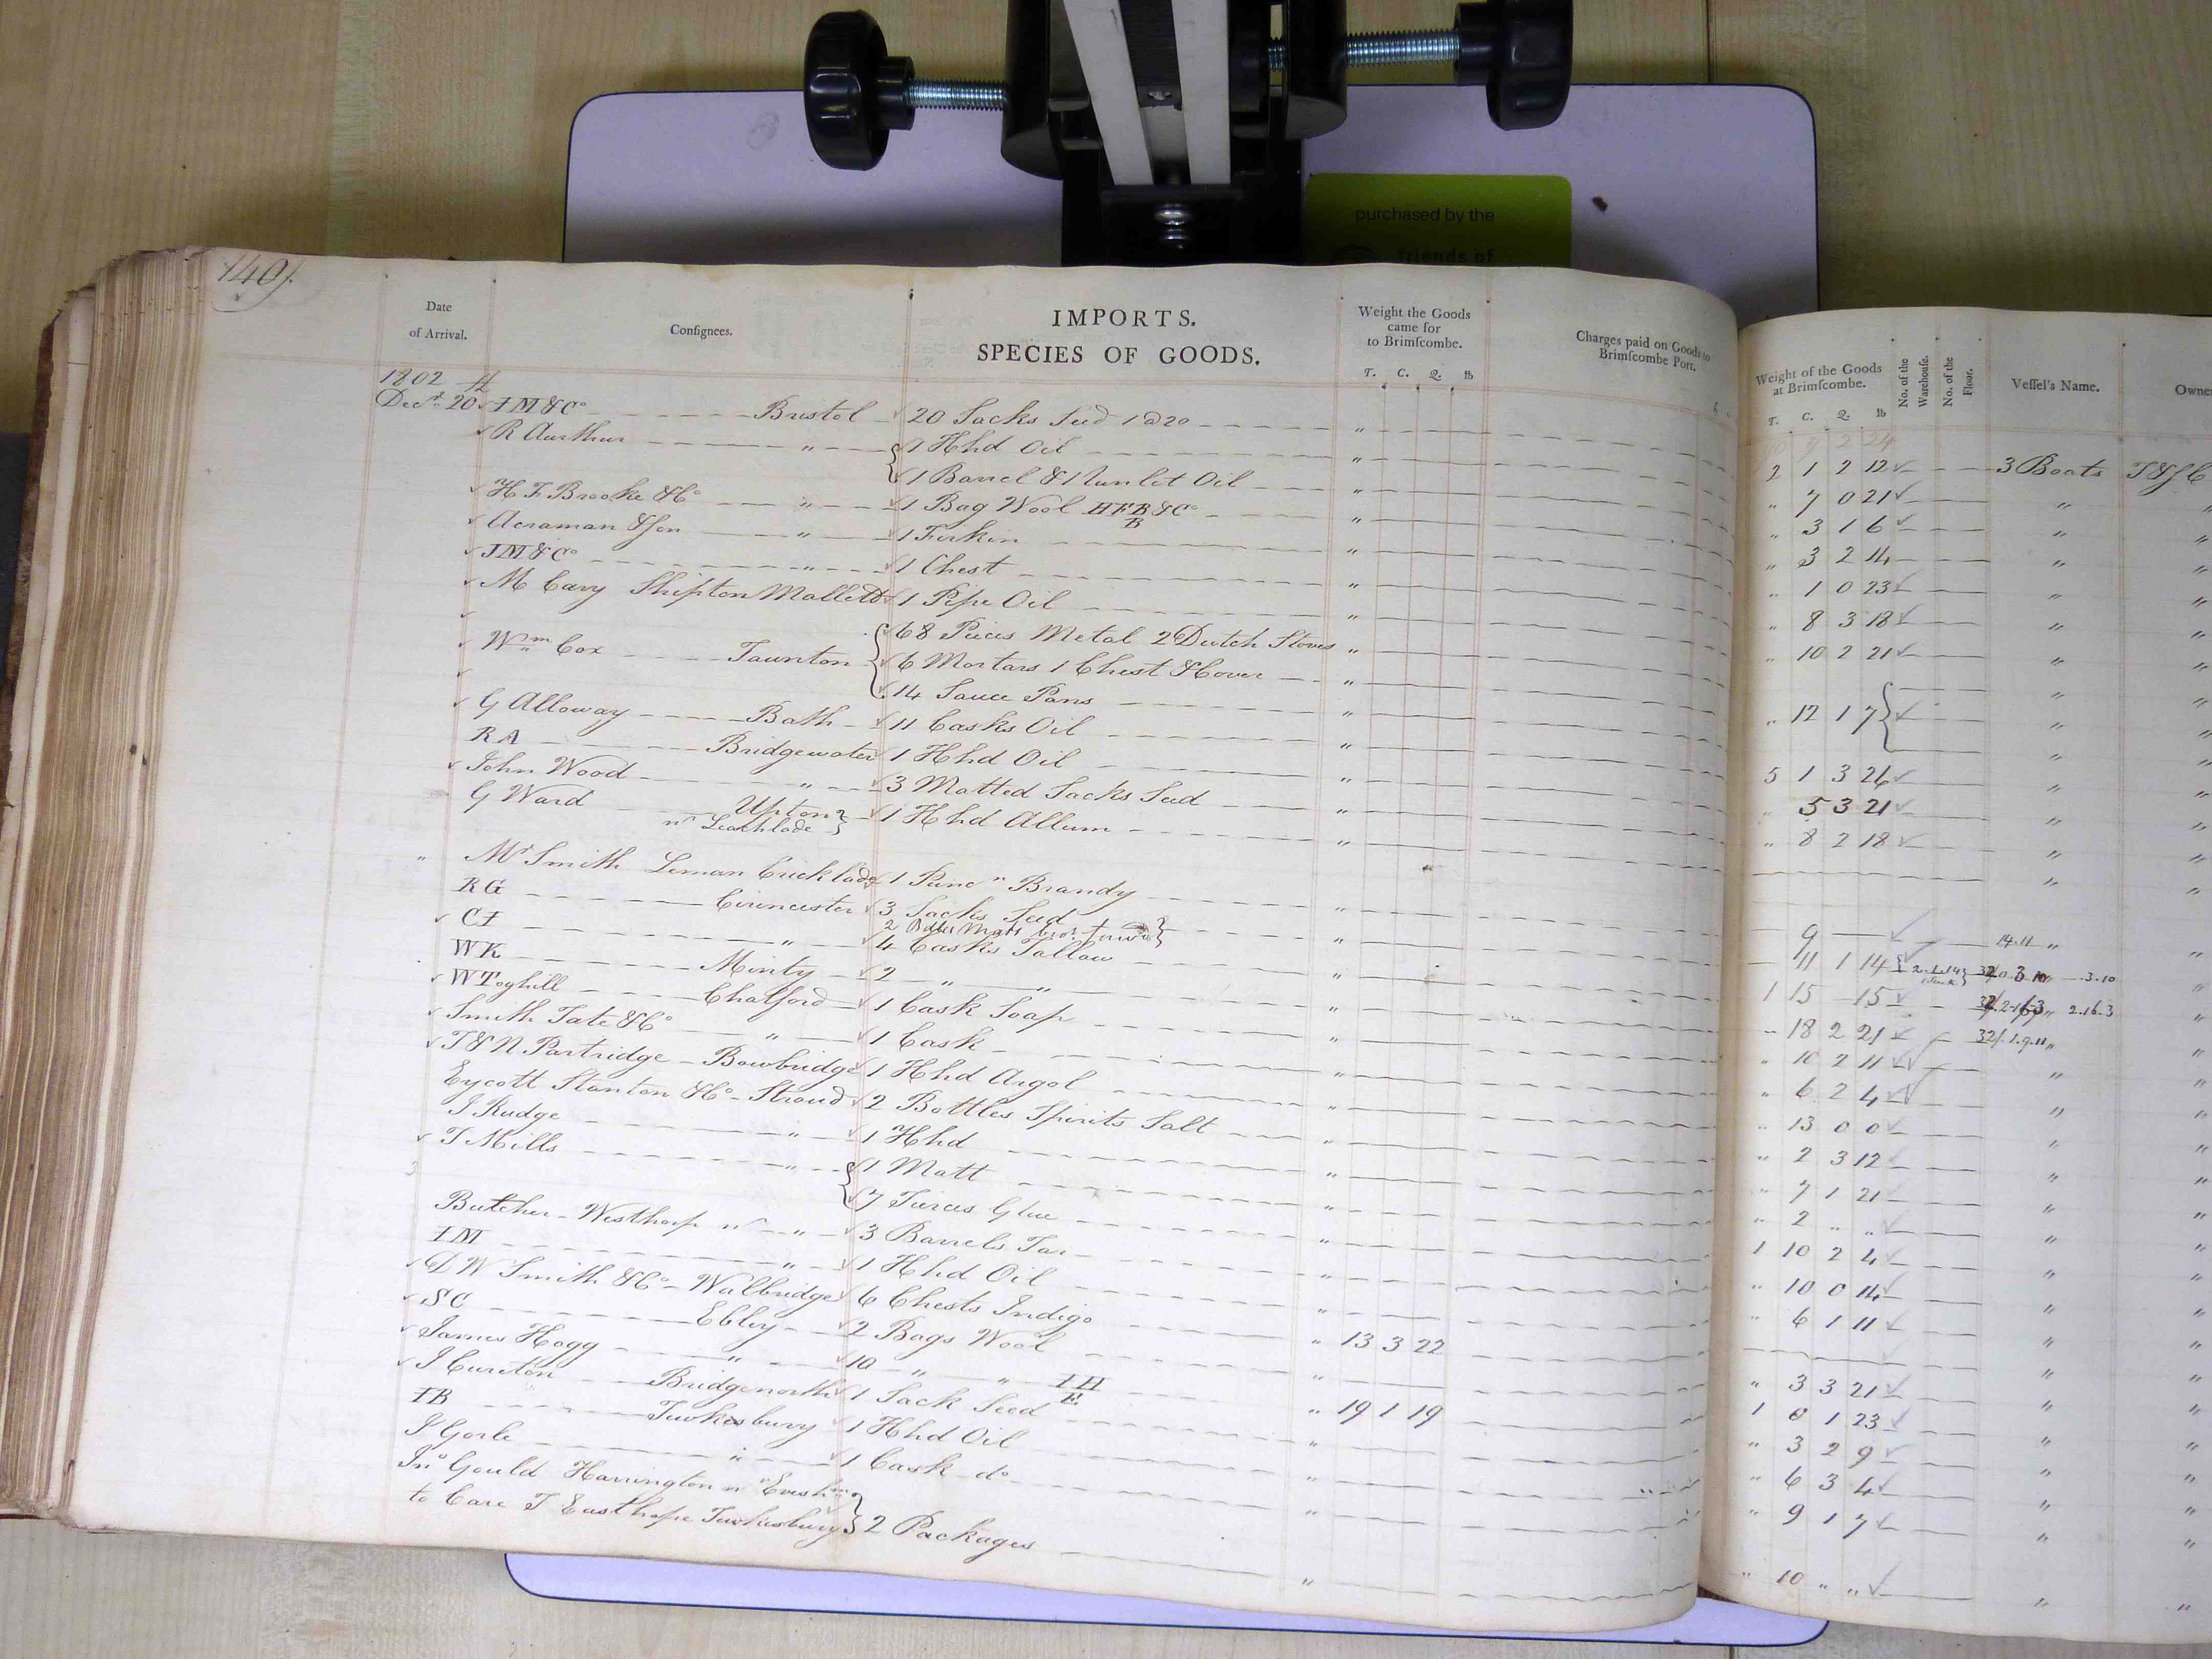 purchased by the
friends of
140
Date of Arrival. Consignees. IMPORTS. SPECIES OF GOODS. Weight the Goods came for to Brimscombe. T. C. Q. lb Charges paid on Goods to Brimscombe Port.
Weight of the Goods at Brimscombe. T. C. Q. lb No. of the Warehouse. No. of the Floor. Vessel's Name. Owner
1802
Decr. 20 IM&Co Bristol 20 Sacks Seed 1@20 " 2 1 2 12 3 Boats
R Aurthur " 1 Hhd Oil " " 7 0 21 "
1 Barrel & Runlet Oil " " 3 1 6 "
H F Brooke &Co " 1 Bag Wool HFB&Co B " " 3 2 14 "
Acraman &Son " 1 Firkin " " 1 0 23 "
IM&Co " 1 Chest " " 8 3 18 "
M Cary Shipton Mallett 1 Pipe Oil " " 10 2 21 "
68 Pieces Metal 2 Dutch Stoves " "
Wm Cox Taunton 6 Mortars 1 Chest &Cover " " 12 1 7 "
14 Sauce Pans " "
G Alloway Bath 11 Casks Oil " 5 1 3 26 "
RA Bridgewater 1 Hhd Oil " " 5 3 21 "
John Wood " 3 Matted Sacks Seed " " 8 2 18 "
G Ward Upton nr Leachlade 1 Hhd Allum " "
" Mr Smith Leman Cricklade 1 Punn Brandy " 9 14.11 "
RG Cirencester 3 Sacks Seed " 11 1 14
2 Mats
CI " 4 Casks Tallow " 1 15 - 15 2.16.3
WK Minty 2 " " " 18 2 21 32/. 1.9.11 "
W Toghill Chalford 1 Cask Soap " " 10 2 11 "
Smith Tate &Co " 1 Cask " " 6 2 4 "
T&N Partridge Bowbridge 1 Hhd Argol " " 13 0 0 "
Eycott Stanton &Co Stroud 2 Bottles Spirits Salt " " 2 3 12 "
J Rudge " 1 Hhd " " 7 1 21 "
T Mills " 1 Matt " " 2 " " "
7 Tierces Glue " 1 10 2 4 "
Butcher Westhorp nr " 3 Barrels Tar " " 10 0 14 "
IM " 1 Hhd Oil " " 6 1 11 "
D W Smith &Co Walbridge 6 Chests Indigo " 13 3 22 "
SC Ebley 2 Bags Wool " " 3 3 21 "
James Hogg " 10 " " IH E " 19 1 19 1 0 1 23 "
J Cureton Bridgenorth 1 Sack Seed " " 3 2 9 "
IB Tewkesbury 1 Hhd Oil " " 6 3 4 "
J Gorle " 1 Cask do " " 9 1 7 "
Jno Gould Harrington nr Eveshm
to Care T Easthope Tewkesbury 2 Packages " " 10 " " "